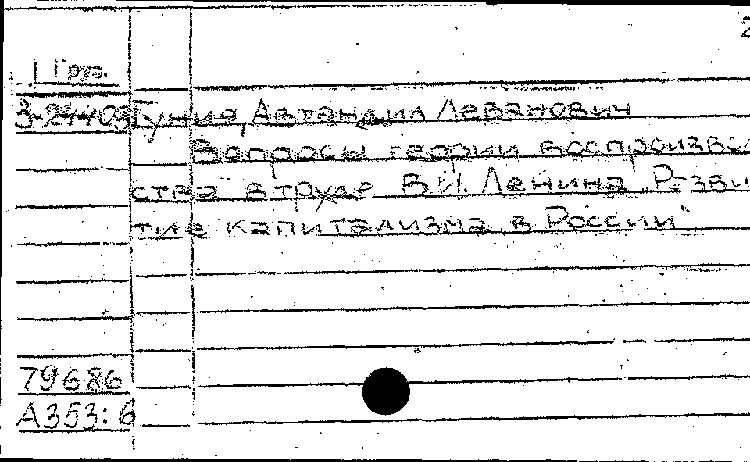 2
1 Груз.
3-24409 Гуния, Автандил Леванович
Вопросы теории воспроизвод
ства в труде В.И. Ленина „Разви
тие капитализма в России"
79686
А353:6